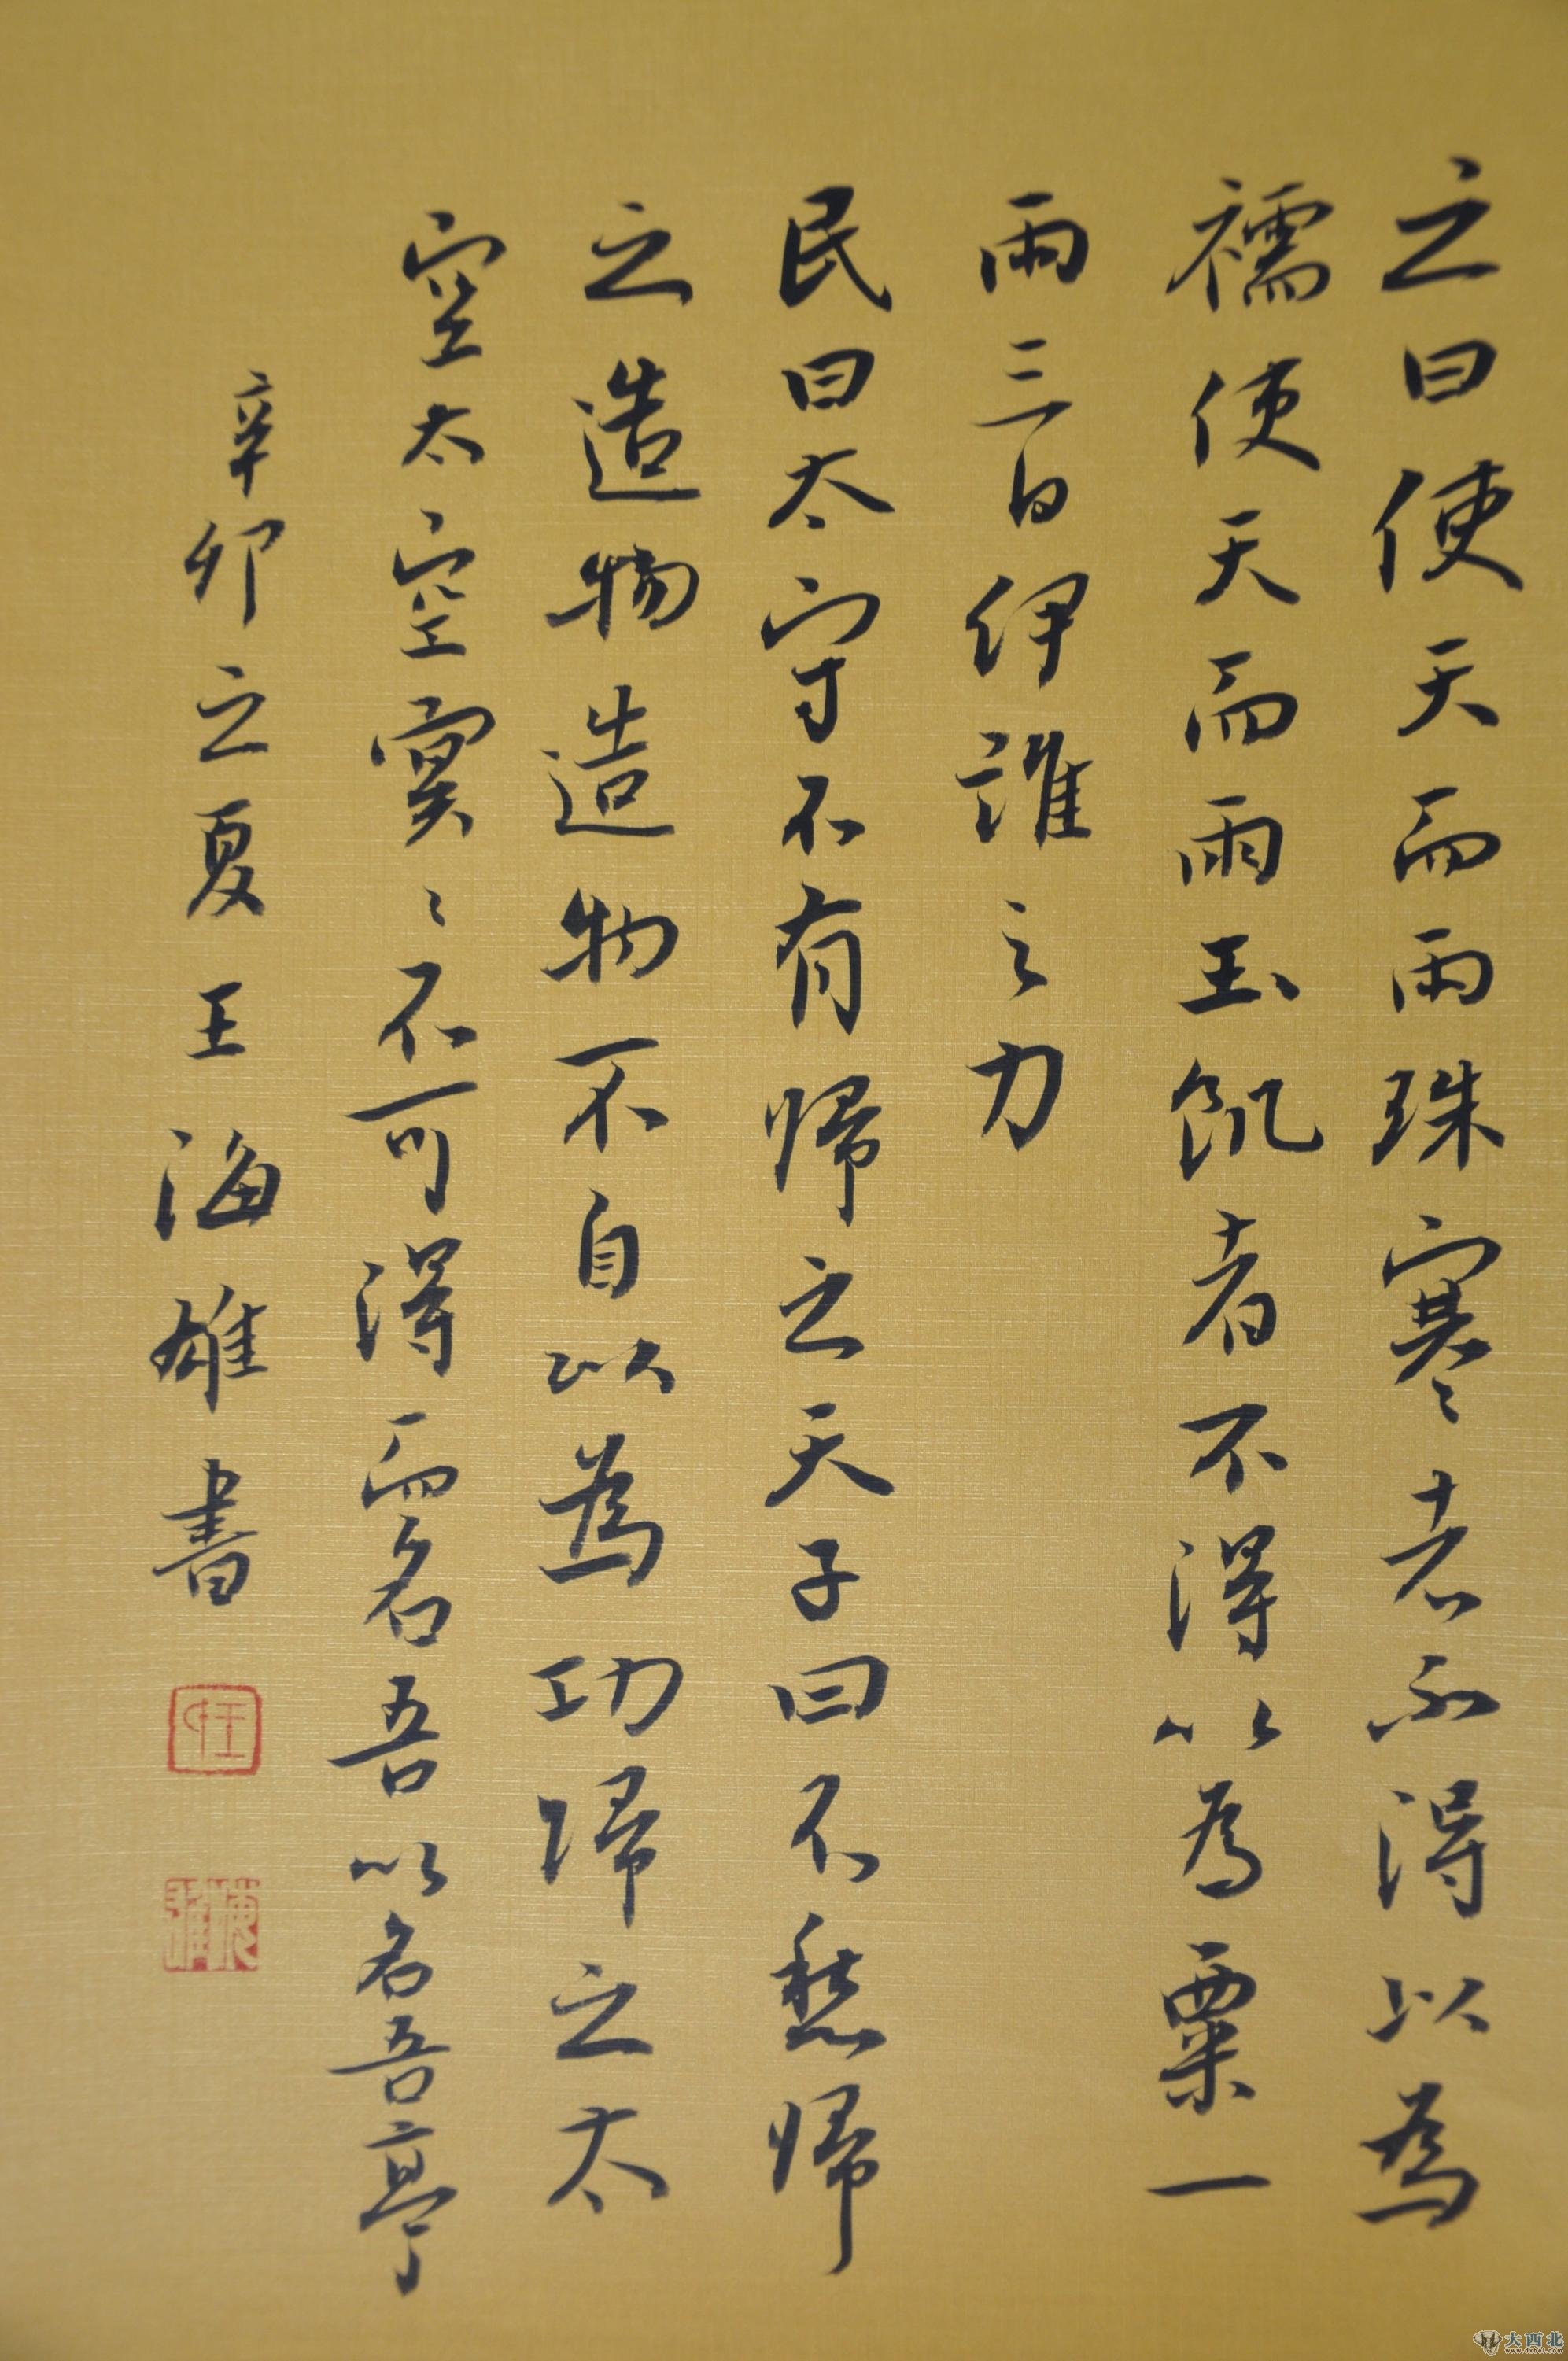 之曰使天而雨珠寒者不得以為
襦使天而雨玉飢者不得以為粟一
雨三日伊誰之力
民曰太守不有歸之天子曰不愁歸
之造物造物不自以為功歸之太
空太空冥〻不可得而名吾以名吾亭
辛卯之夏王海雄書
大西北